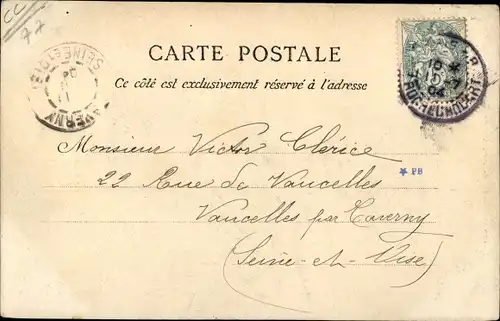 CC
77
CARTE POSTALE
Ce côté est exclusivement réservé à l'adresse
SEINE-ET-OISE
TAVERNY
04
Monsieur Victor Clérice
22 Rue de Vaucelles
* PB
Vaucelles par Taverny
(Seine-et-Oise)